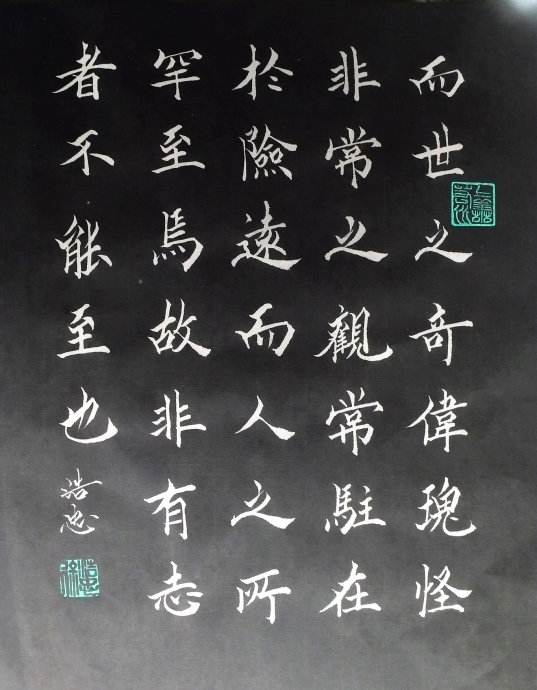 而世之奇偉瑰怪
非常之觀常駐在
於險遠而人之所
罕至焉故非有志
者不能至也
浩忠